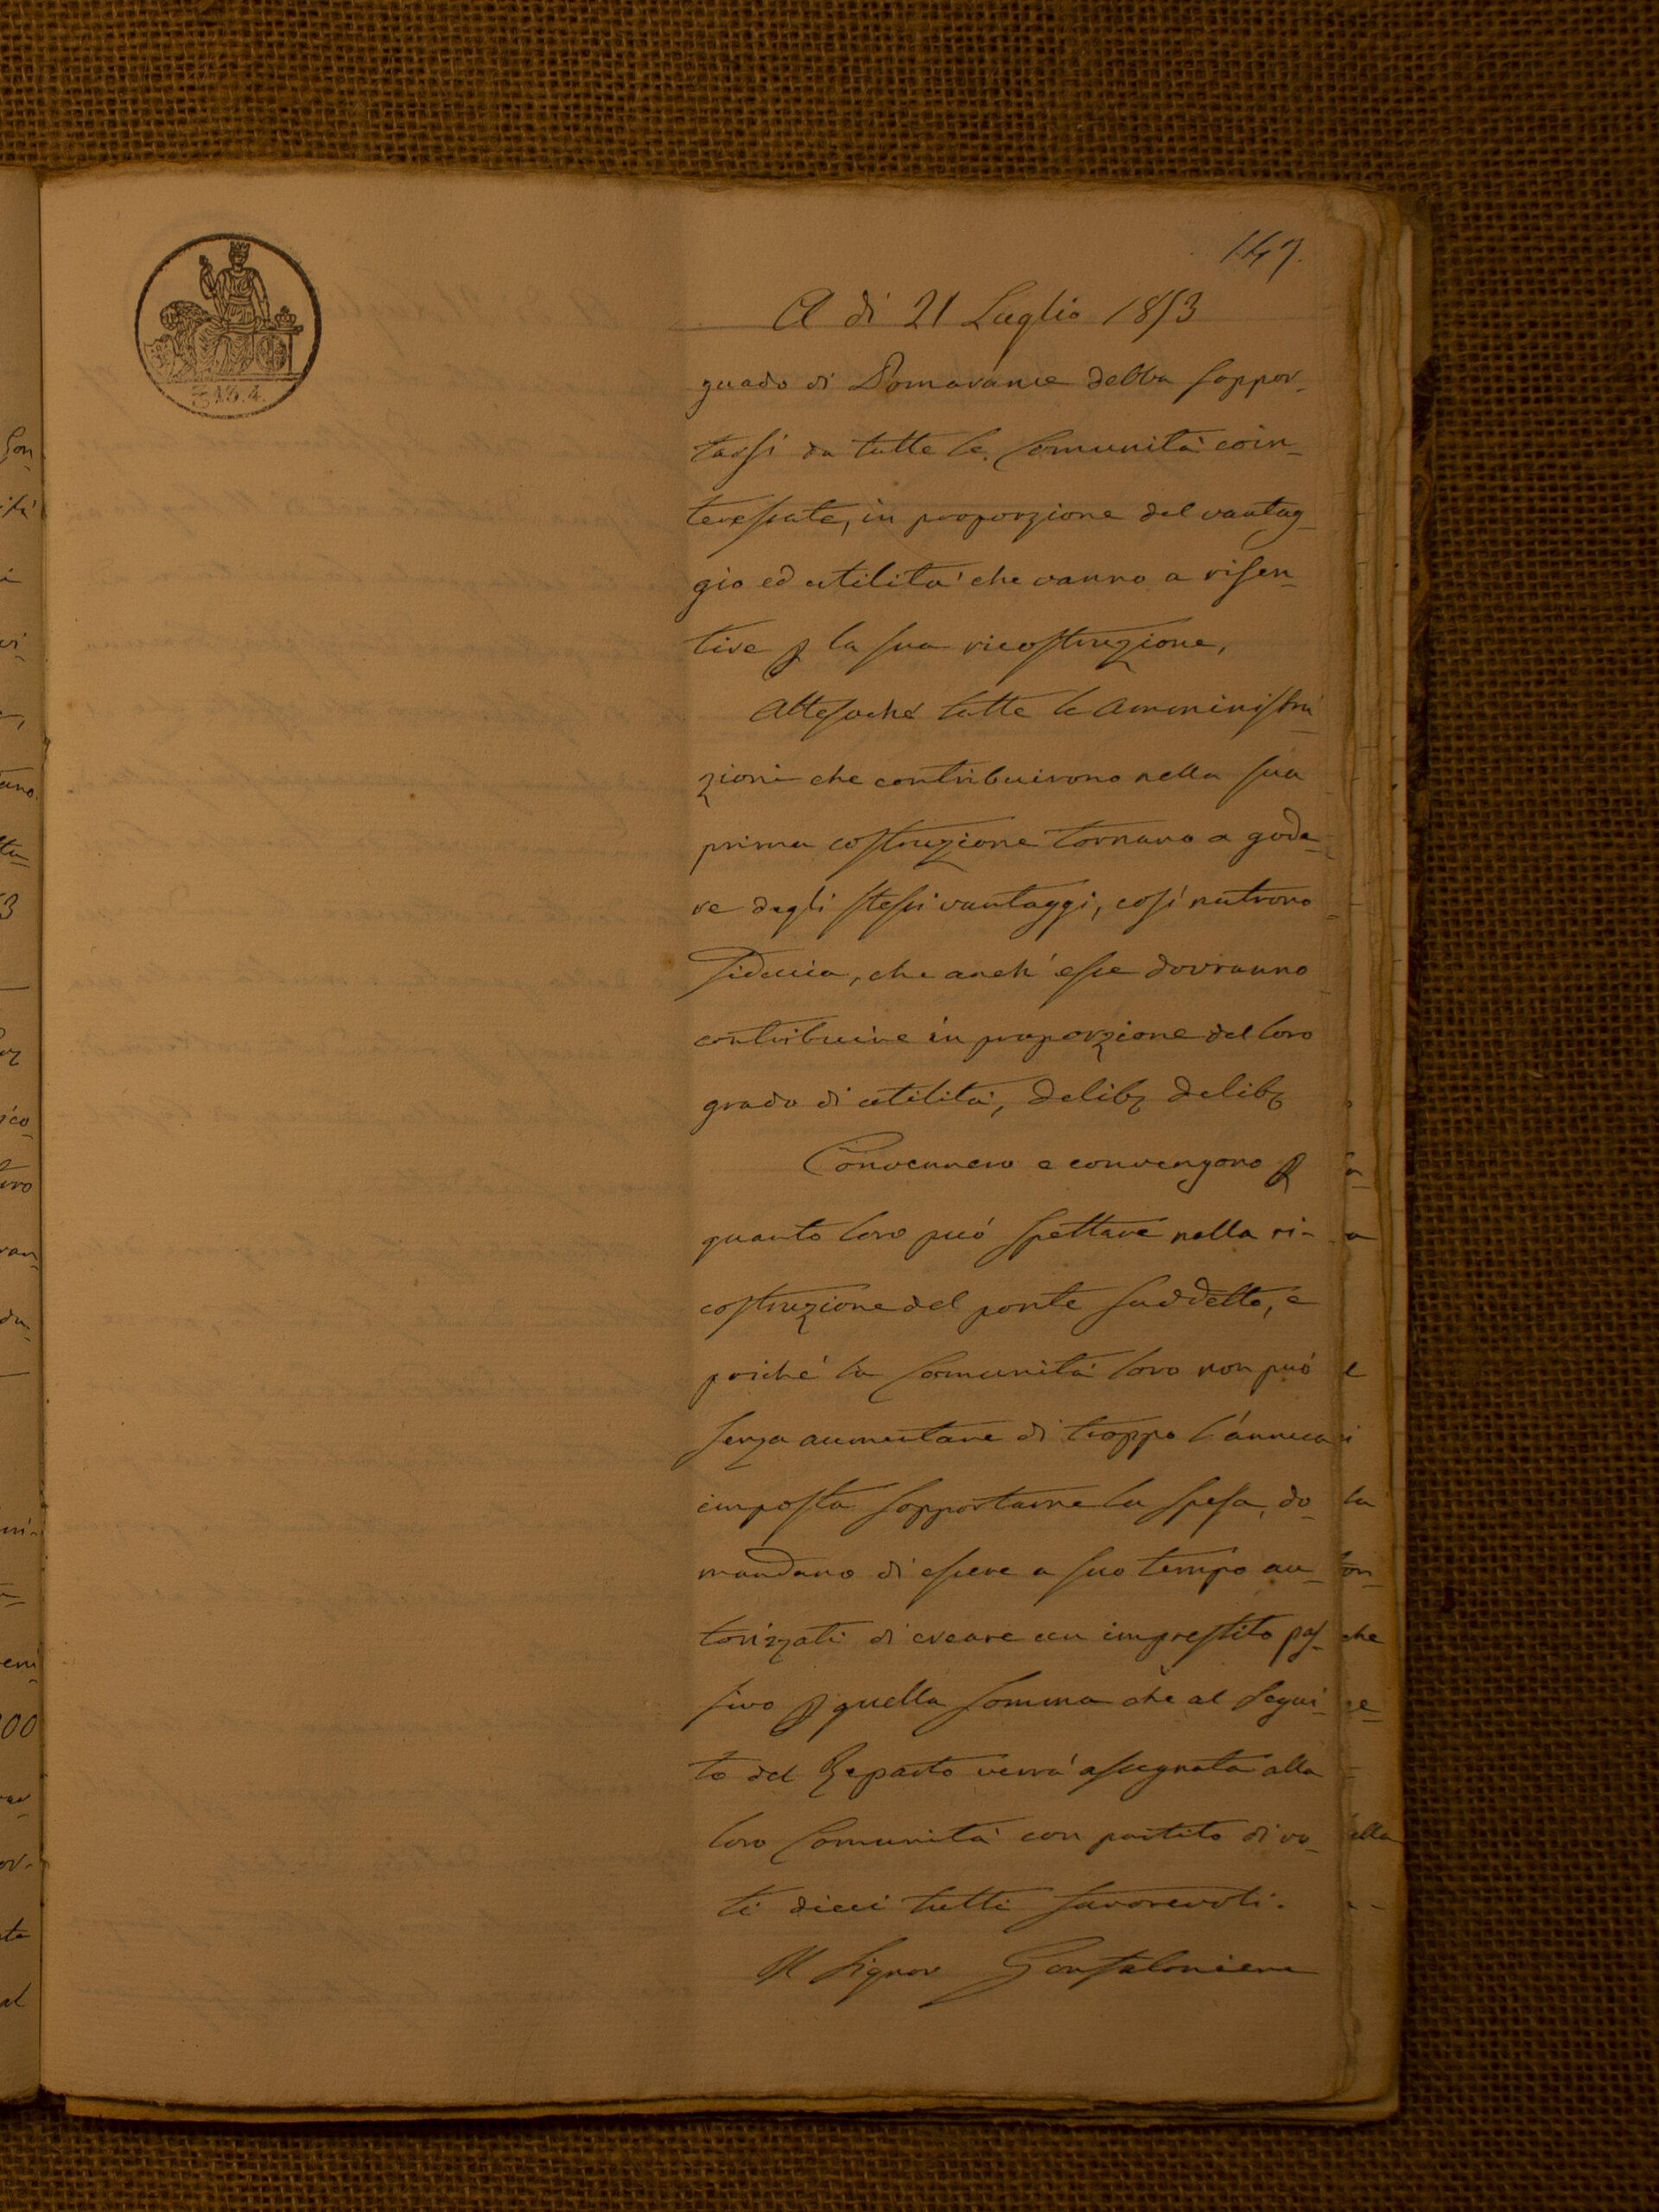 147.
A di 21 Luglio 1853
guado di Pomarance debba soppor-
tarsi da tutte le Comunità coin-
teressate, in proporzione del vantag-
gio ed utilità che vanno a risen-
tire p la sua ricostruzione,
Attesoché tutte le Amministra-
zioni che contribuirono nella sua
prima costruzione tornano a gode-
re degli stessi vantaggi, così nutrono
fiducia, che anch'esse dovranno
contribuire in proporzione del loro
grado di utilità, Delib Delib
Convennero e convengono p
quanto loro può spettare nella ri-
costruzione del ponte suddetto, e
poiché la Comunità loro non può
senza aumentare di troppo l'annua
imposta sopportarne la spesa, do-
mandano di essere a suo tempo au-
torizzati di creare un imprestito pas-
sivo p quella somma che al segui-
to del Reparto verrà assegnata alla
loro Comunità con partito di vo-
ti dieci tutti favorevoli.
Il Signor Gonfaloniere